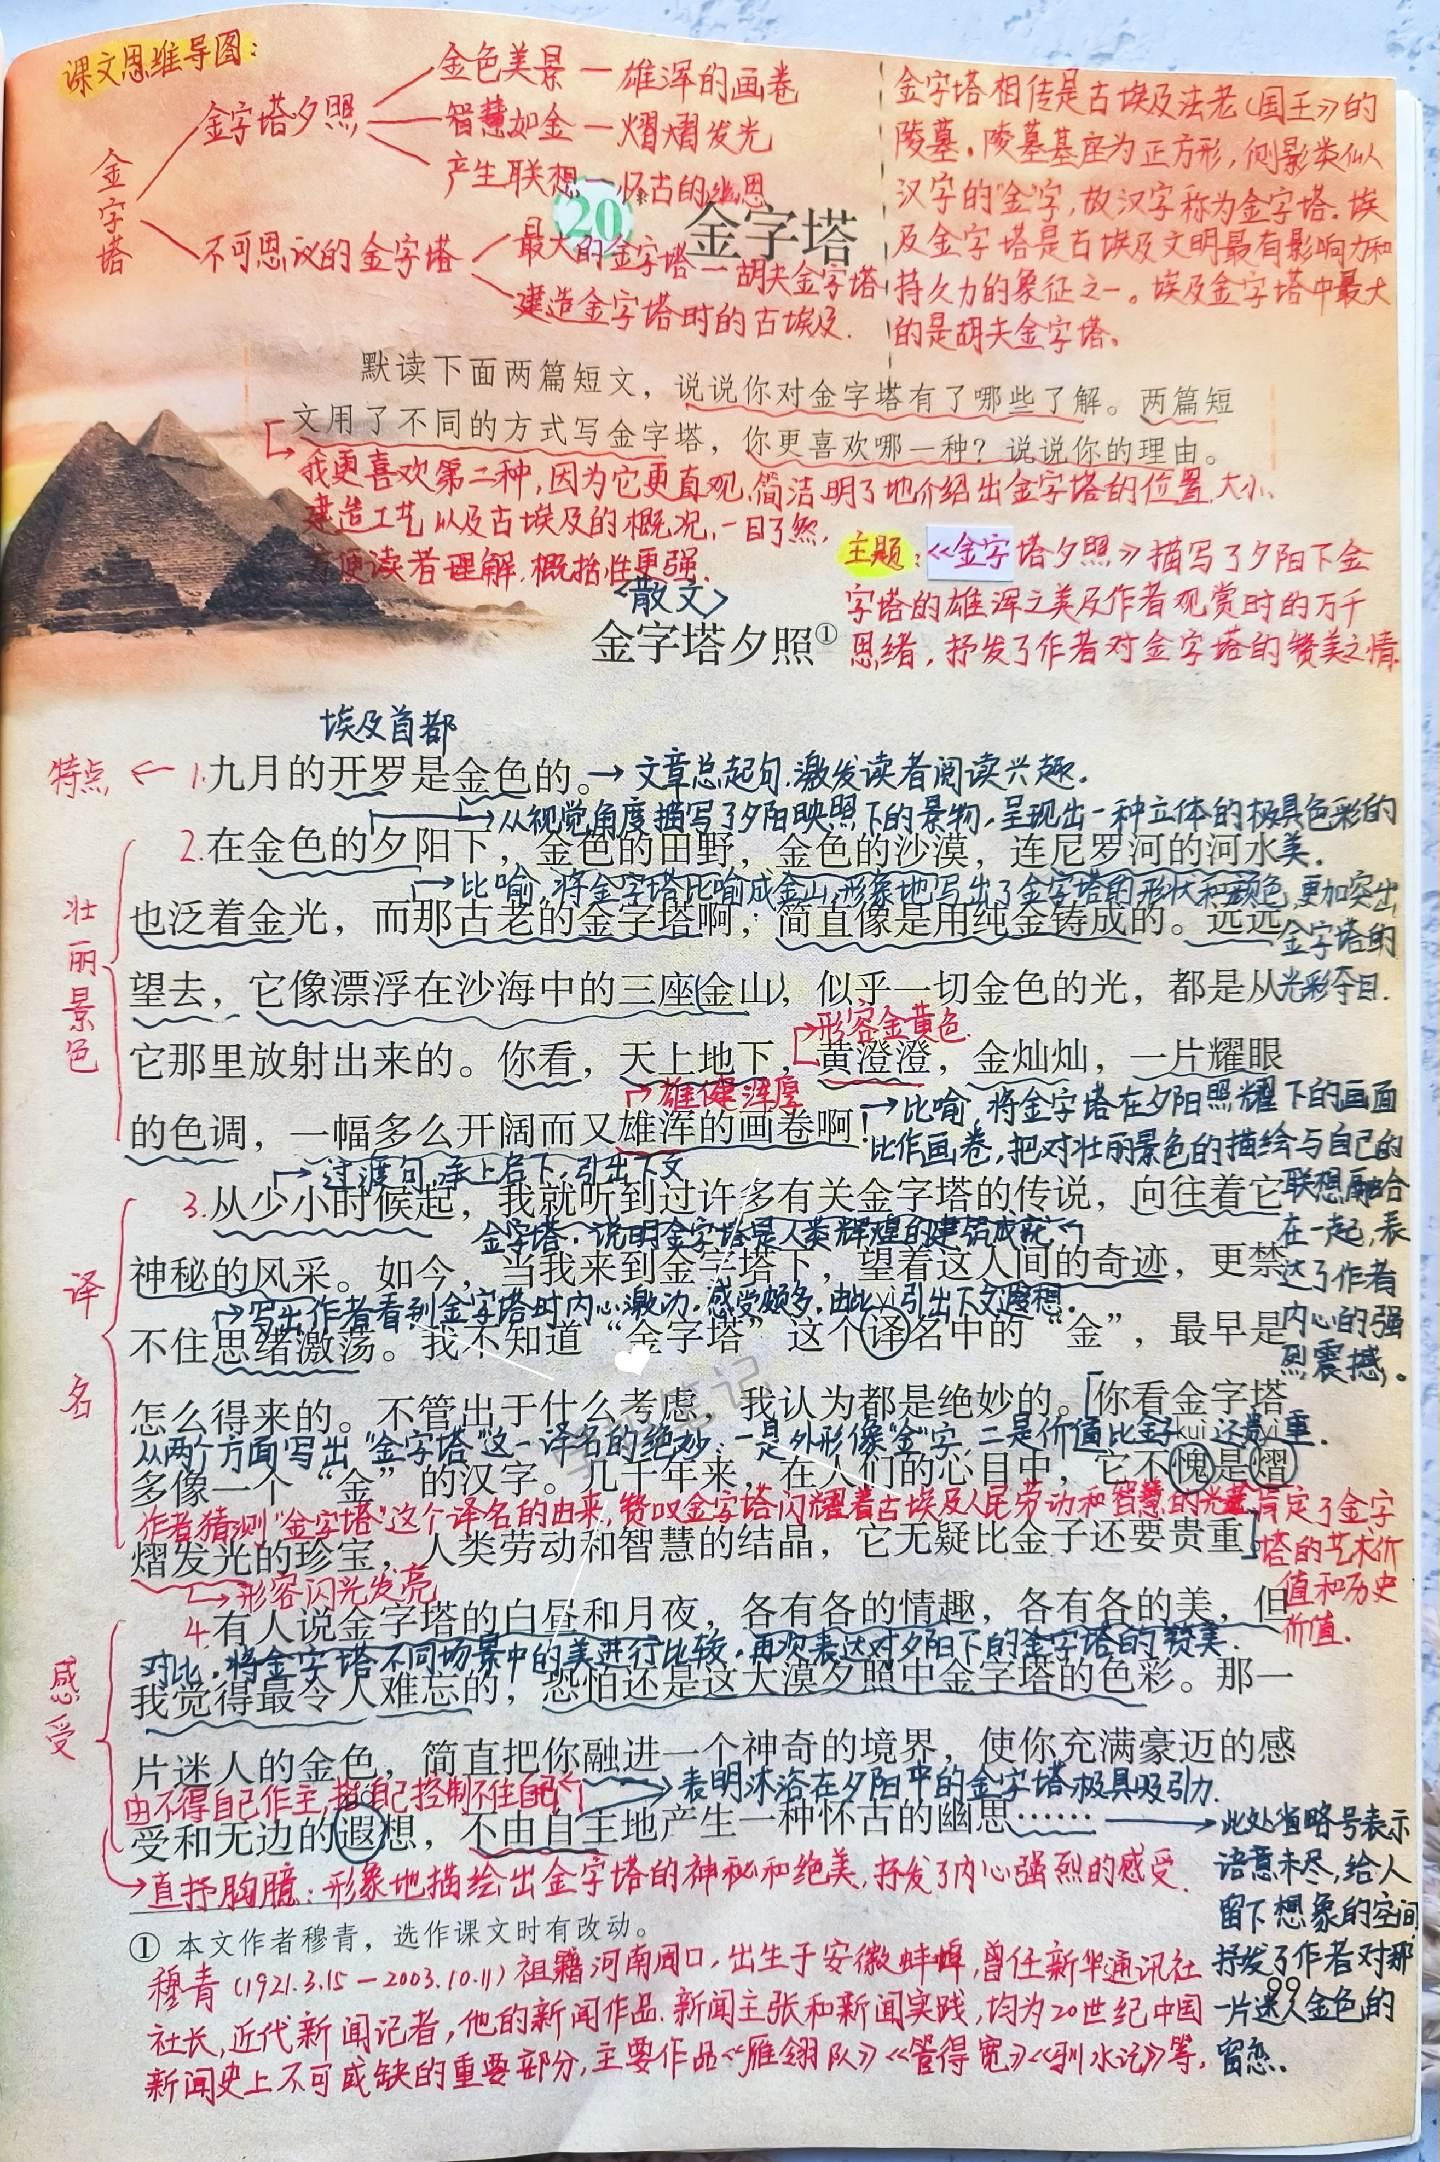 课文思维导图：
金字塔
金字塔夕照
金色美景—雄浑的画卷
智慧如金—熠熠发光
产生联想—怀古的幽思
不可思议的金字塔
最大的金字塔—胡夫金字塔
建造金字塔时的古埃及.
金字塔相传是古埃及法老(国王)的
陵墓。陵墓基座为正方形，侧影类似
汉字的"金"字，故汉字称为金字塔。埃
及金字塔是古埃及文明最有影响力和
持久力的象征之一。埃及金字塔中最大
的是胡夫金字塔。
20 金字塔
默读下面两篇短文，说说你对金字塔有了哪些了解。两篇短
文用了不同的方式写金字塔，你更喜欢哪一种？说说你的理由。
我更喜欢第二种，因为它更直观、简洁明了地介绍出金字塔的位置、大小、
建造工艺以及古埃及的概况，一目了然，
方便读者理解，概括性更强.
主题：《金字塔夕照》描写了夕阳下金
字塔的雄浑之美及作者观赏时的万千
思绪，抒发了作者对金字塔的赞美之情.
<散文>
金字塔夕照①
埃及首都
特点 ← 1.九月的开罗是金色的。→文章总起句.激发读者阅读兴趣。
→从视觉角度描写了夕阳映照下的景物，呈现出一种立体的极具色彩的
美.
2.在金色的夕阳下，金色的田野，金色的沙漠，连尼罗河的河水
→比喻，将金字塔比喻成金山，形象地写出了金字塔的形状和颜色，更加突出
金字塔的
光彩夺目.
也泛着金光，而那古老的金字塔啊，简直像是用纯金铸成的。远远
望去，它像漂浮在沙海中的三座(金山)，似乎一切金色的光，都是从
壮丽景色
→形容金黄色.
它那里放射出来的。你看，天上地下，黄澄澄，金灿灿，一片耀眼
→雄健浑厚
的色调，一幅多么开阔而又雄浑的画卷啊！
→比喻，将金字塔在夕阳照耀下的画面
比作画卷，把对壮丽景色的描绘与自己的
联想融合
在一起，表
达了作者
内心的强
烈震撼。
→过渡句，承上启下，引出下文
3.从少小时候起，我就听到过许多有关金字塔的传说，向往着它
金字塔，说明金字塔是人类辉煌的建筑成就
神秘的风采。如今，当我来到金字塔下，望着这人间的奇迹，更禁
→写出作者看到金字塔时内心激动，感受颇多，由此引出下文遐想.
yì
不住思绪激荡。我不知道“金字塔”这个译名中的“金”，最早是
译名
怎么得来的。不管出于什么考虑，我认为都是绝妙的。[你看金字塔
从两个方面写出"金字塔"这一译名的绝妙：一是外形像"金"字，二是价值比金子还贵重.
kuì yì
多像一个“金”的汉字。几千年来，在人们的心目中，它不愧是熠
作者猜测"金字塔"这个译名的由来，赞叹金字塔闪耀着古埃及人民劳动和智慧的光芒，肯定了金字
塔的艺术价
值和历史
价值.
熠发光的珍宝，人类劳动和智慧的结晶，它无疑比金子还要贵重。]
→形容闪光发亮
4.有人说金字塔的白昼和月夜，各有各的情趣，各有各的美，但
对比，将金字塔不同场景中的美进行比较，再次表达对夕阳下的金字塔的赞美.
感受
我觉得最令人难忘的，恐怕还是这大漠夕照中金字塔的色彩。那一
片迷人的金色，简直把你融进一个神奇的境界，使你充满豪迈的感
由不得自己作主，指自己控制不住自己
→表明沐浴在夕阳中的金字塔极具吸引力.
受和无边的遐想，不由自主地产生一种怀古的幽思……
→此处省略号表示
语意未尽，给人
留下想象的空间，
抒发了作者对那
一片迷人金色的
留恋.
→直抒胸臆：形象地描绘出金字塔的神秘和绝美，抒发了内心强烈的感受.
① 本文作者穆青，选作课文时有改动。
穆青(1921.3.15—2003.10.11)祖籍河南周口，出生于安徽蚌埠，曾任新华通讯社
社长，近代新闻记者，他的新闻作品.新闻主张和新闻实践，均为20世纪中国
新闻史上不可或缺的重要部分，主要作品《雁翎队》《管得宽》等，
99